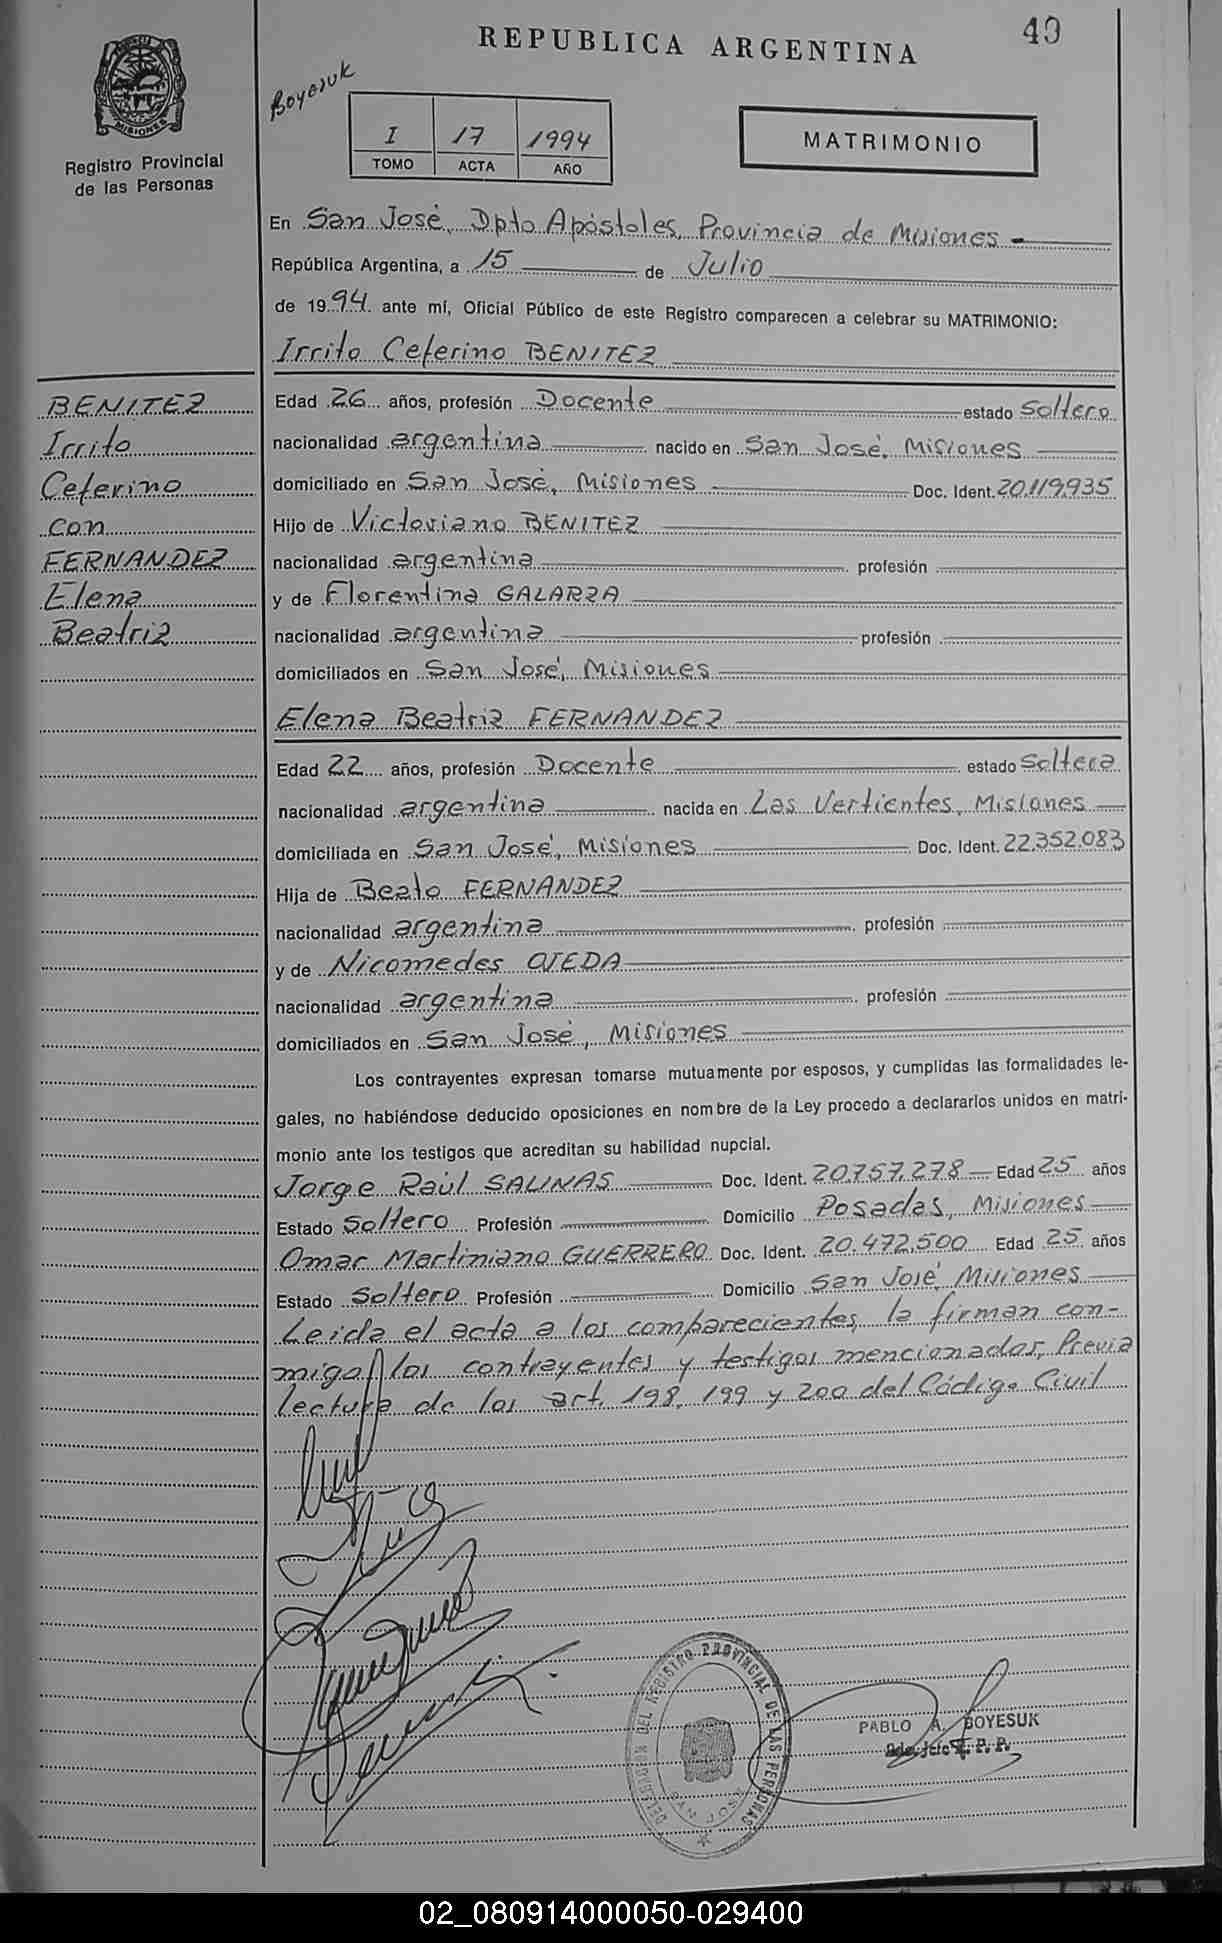 REPUBLICA ARGENTINA
49
MISIONES
Registro Provincial
de las Personas
Boyesuk
I 17 1994
TOMO ACTA AÑO
MATRIMONIO
En San José, Dpto Apóstoles, Provincia de Misiones -
República Argentina, a 15 de Julio
de 1994 ante mí, Oficial Público de este Registro comparecen a celebrar su MATRIMONIO:
Irrito Ceferino BENITEZ
BENITEZ
Irrito
Ceferino
con
FERNANDEZ
Elena
Beatriz
Edad 26 años, profesión Docente estado Soltero
nacionalidad argentina nacido en San José, Misiones
domiciliado en San José, Misiones Doc. Ident. 20.119.935
Hijo de Victoriano BENITEZ
nacionalidad argentina profesión
y de Florentina GALARZA
nacionalidad argentina profesión
domiciliados en San José, Misiones
Elena Beatriz FERNANDEZ
Edad 22 años, profesión Docente estado Soltera
nacionalidad argentina nacida en Las Vertientes, Misiones
domiciliada en San José, Misiones Doc. Ident. 22.352.083
Hija de Beato FERNANDEZ
nacionalidad argentina profesión
y de Nicomedes OJEDA
nacionalidad argentina profesión
domiciliados en San José, Misiones
Los contrayentes expresan tomarse mutuamente por esposos, y cumplidas las formalidades le-
gales, no habiéndose deducido oposiciones en nombre de la Ley procedo a declararlos unidos en matri-
monio ante los testigos que acreditan su habilidad nupcial.
Jorge Raúl SALINAS Doc. Ident. 20.757.278 Edad 25 años
Estado Soltero Profesión Domicilio Posadas, Misiones
Omar Martiniano GUERRERO Doc. Ident. 20.472.500 Edad 25 años
Estado Soltero Profesión Domicilio San José, Misiones
Leida el acta a los comparecientes, la firman con-
migo, los contrayentes y testigos mencionados, Previa
lectura de los art. 198, 199 y 200 del Código Civil
DELEGACION DEL REGISTRO PROVINCIAL DE LAS PERSONAS
SAN JOSE
PABLO A. BOYESUK
02_080914000050-029400